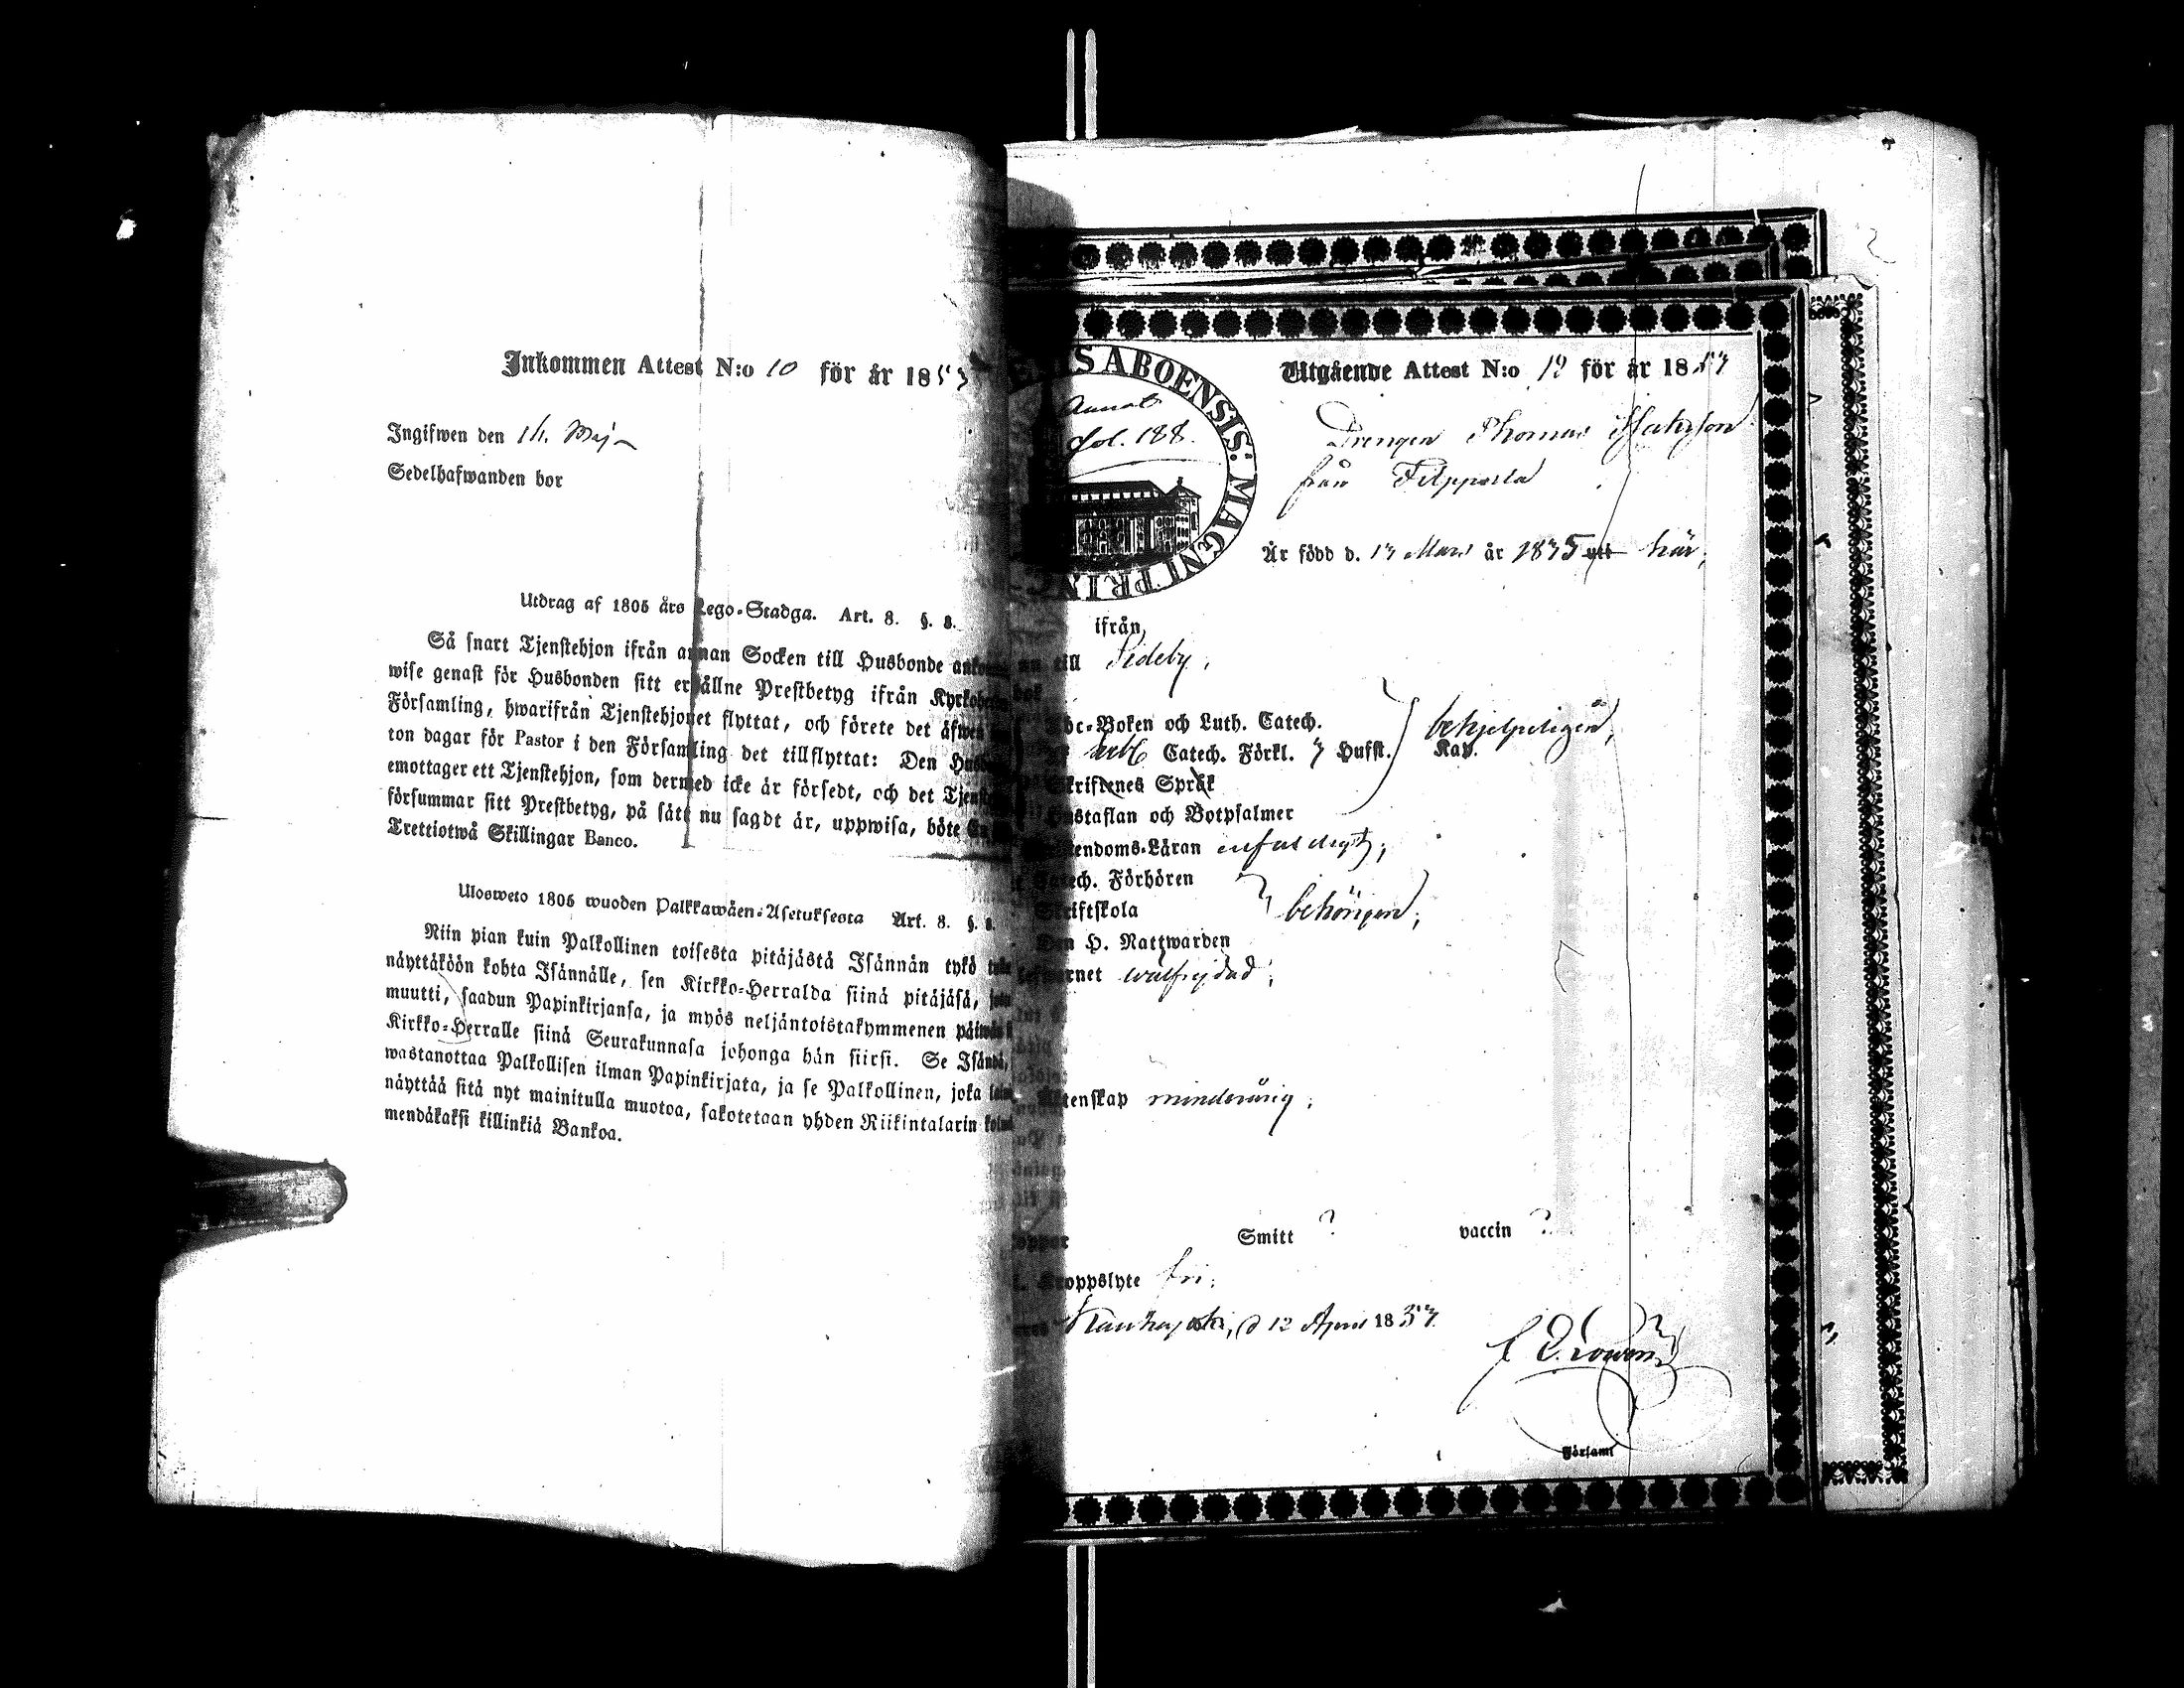 Inkommen Attest N:o 10 för år 1853
Ingifwen den 16. Maj
Sedelhafwanden bor
Utdrag af 1805 års Lego-Stadga. Art. 8. §. 8.
Så snart Tjenstehjon ifrån annan Socken till Husbonde
wise genast för Husbonden sitt erhållne Prestbetyg ifrån
Församling, hwarifrån Tjenstehjonet flyttat, och förete det
ton dagar för Pastor i den Församling det tillflyttat: Den
emottager ett Tjenstehjon, som dermed icke är försedt, och det
försummar sitt Prestbetyg, på sätt nu sagdt är, uppwisa, böte
Trettiotwå Skillingar Banco.
Ulosweto 1805 wuoden Palkkawäen-Asetuksesta Art. 8. §. 8.
Niin pian kuin Palkollinen toisesta pitäjästä Isännän tykö
näyttäköön kohta Isännälle, sen Kirkko-Herralda siinä pitäjäsä,
muutti, saadun Papinkirjansa, ja myös neljäntoistakymmenen
Kirkko-Herralle siinä Seurakunnasa johonga hän siirsi. Se Isändä,
wastanottaa Palkollisen ilman Papinkirjata, ja se Palkollinen, joka
näyttää sitä nyt mainitulla muotoa, sakotetaan yhden Riikintalarin
mendäkaksi killinkiä Bankoa.
ABOENSIS: MAGNI PRINC
fol. 188.
Utgående Attest N:o 12 för år 1853
Drengen Thomas
från Filppula
Är född d. 13 Mars år 1835 att här,
ifrån
till Sideby,
Abc-Boken och Luth. Catech.
Catech. Förkl. 7 Hufst. Kap. behjelpeligen,
Skriftenes Språk
Hustaflan och Botpsalmer
endoms-Läran enfaldigt;
Catech. Förhören
Skriftskola behörigen;
Den H. Nattwarden
lefwernet wälfrejdad;
Äktenskap minderårig;
Smitt ? vaccin ?
Kroppslyte fri;
Kauhajoki, d 12 April 1853
Församl